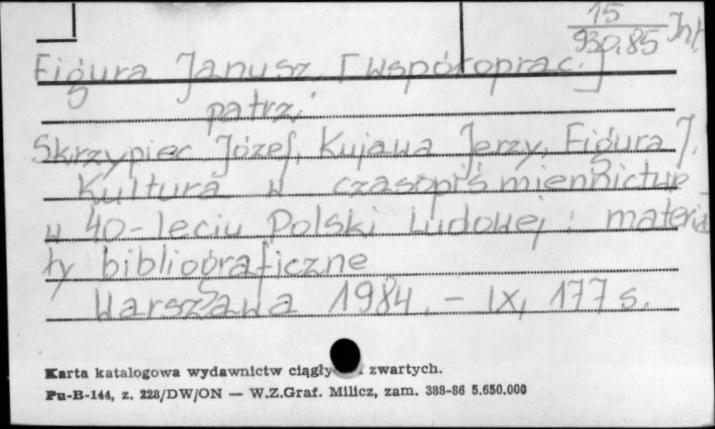 15
930.85 Inf.
Figura Janusz [współoprac.]
patrz:
Skrzypiec Józef, Kujawa Jerzy, Figura J.
Kultura w czasopiśmiennictwie
w 40-leciu Polski Ludowej : materia
ły bibliograficzne
Warszawa 1984. - IX, 177 s.
Karta katalogowa wydawnictw zwartych.
Pu-B-144, z. 228/DW/ON — W.Z.Graf. Milicz, zam. 388-86 5.650.000